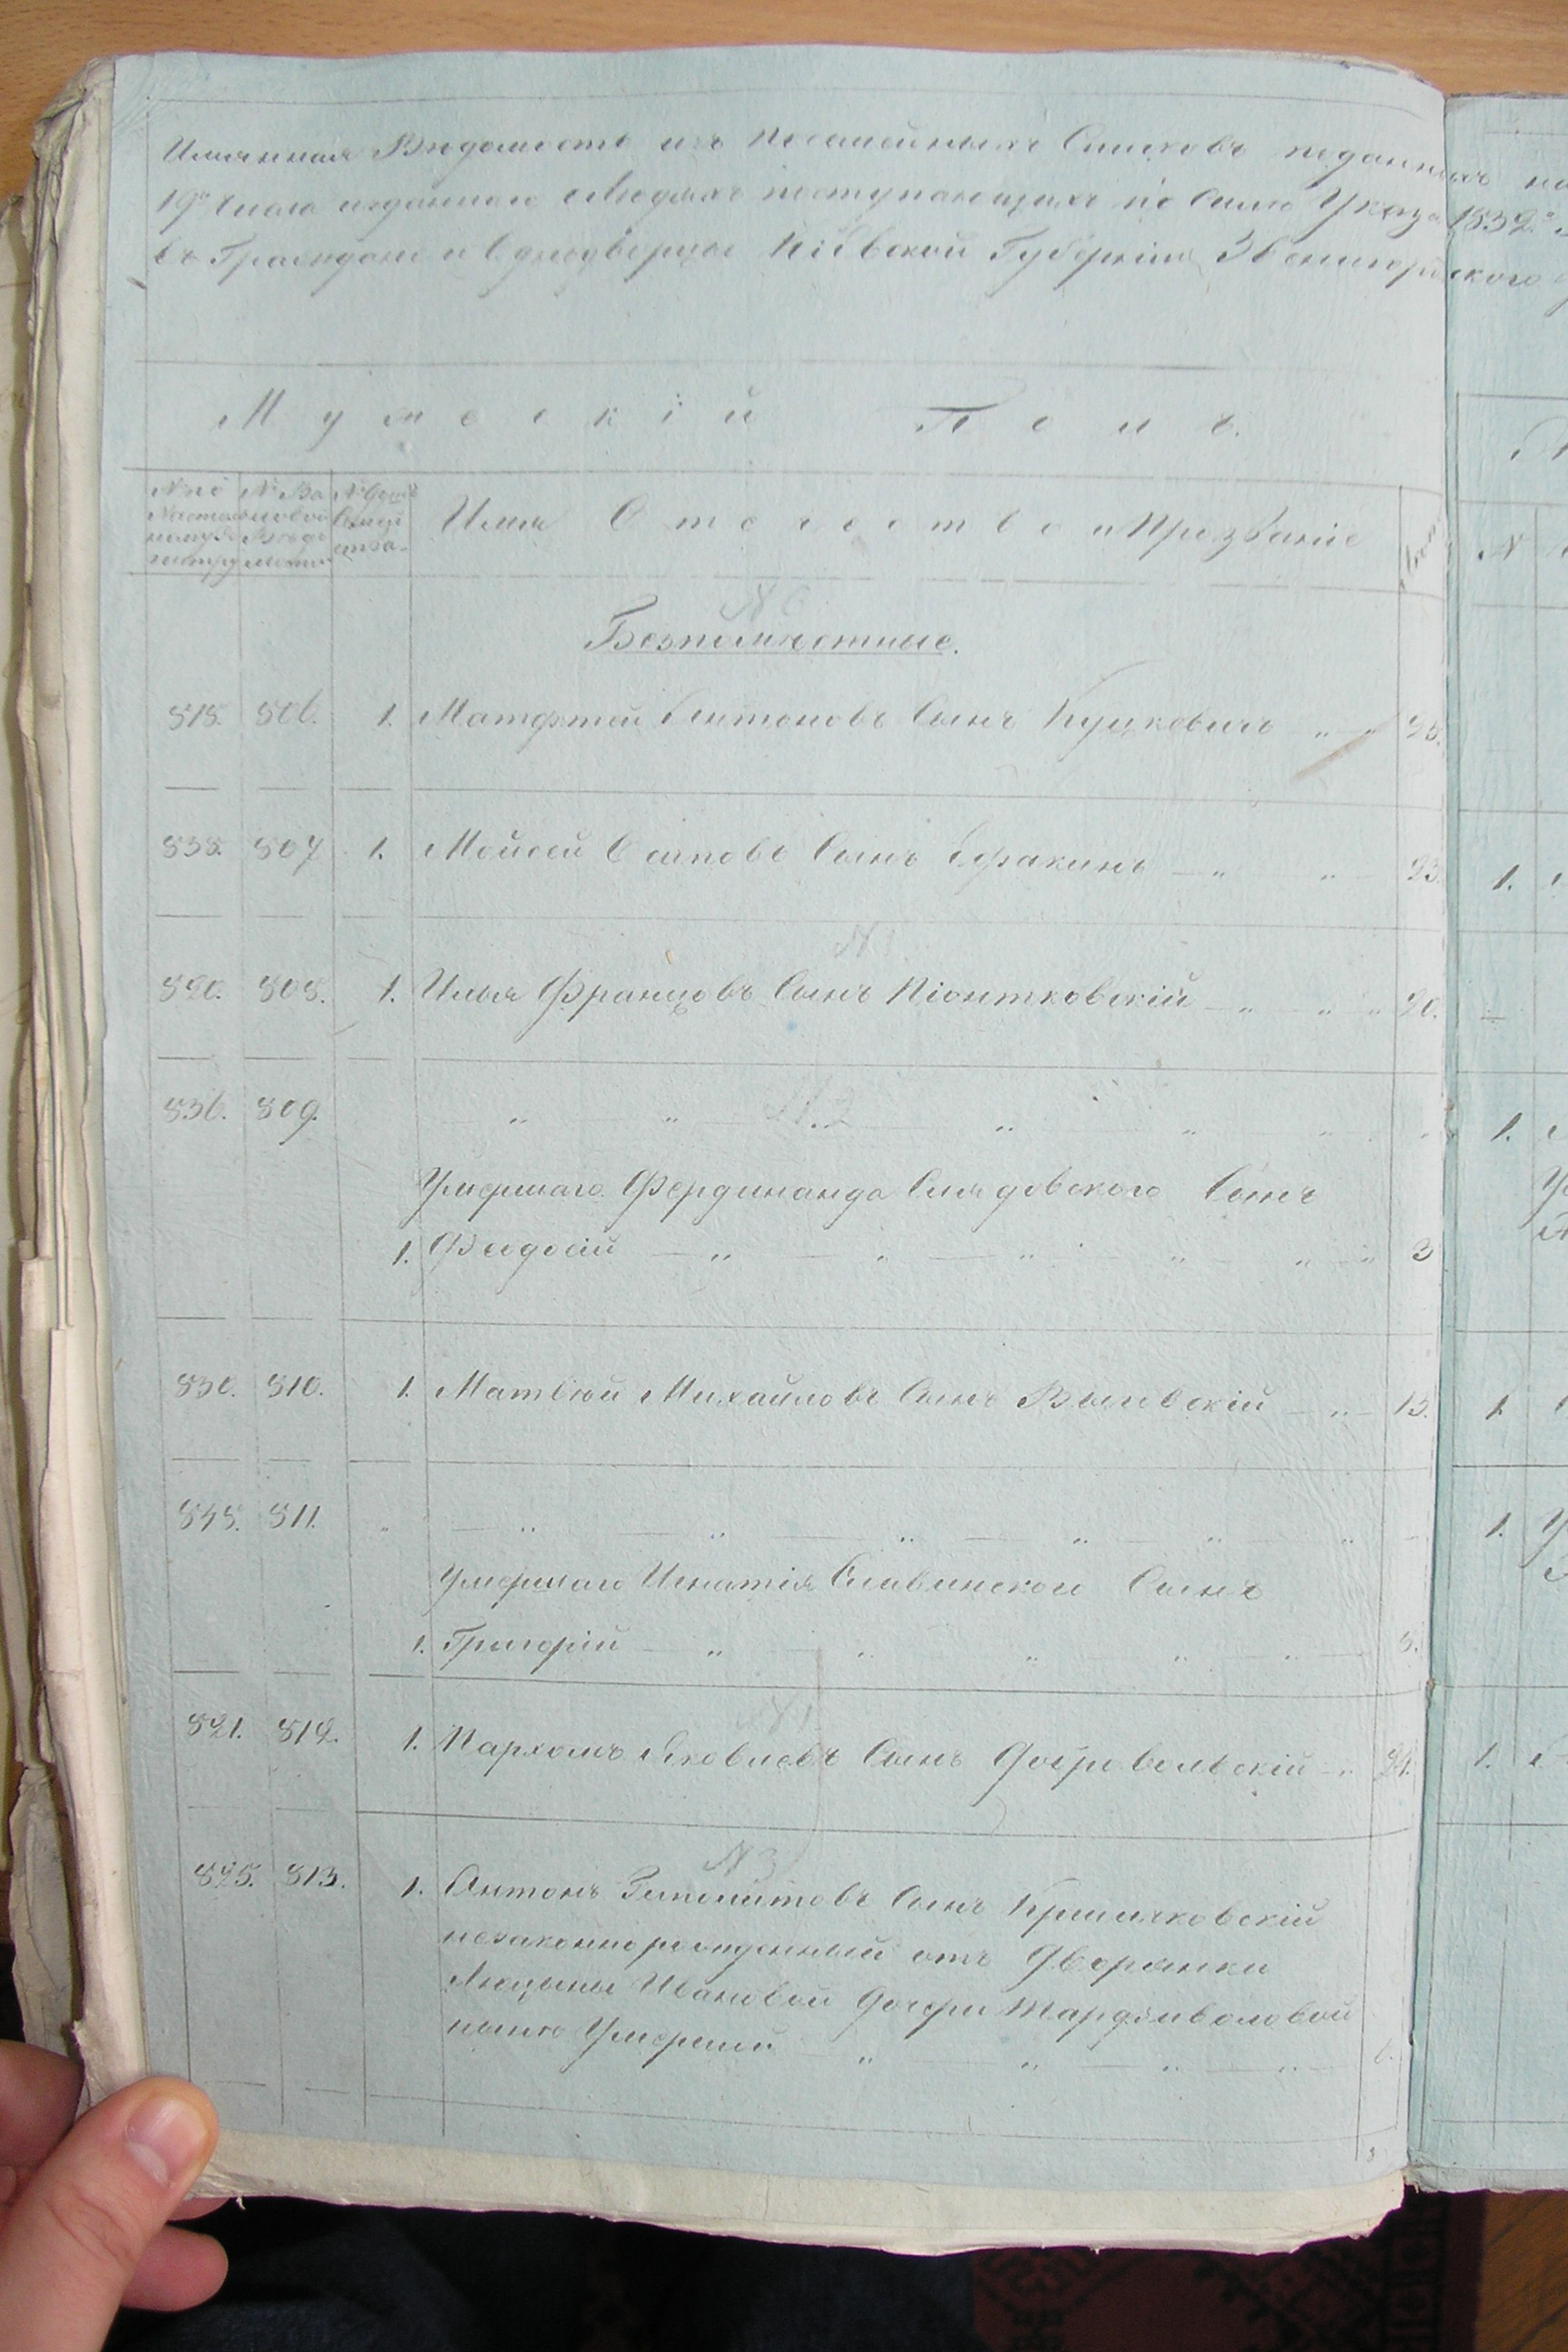 Имянная Ведомость изъ посемейныхъ Списковъ поданныхъ на
19го числа изданного Людяхъ поступающихъ по силе Указа 1832го
въ Граждане и Однодворцы Кіевской Губерніи Звенигородского
Мужескій Полъ.
№ по
№ Ва
Имя Отчество и Прозваніе
№
№ 6
Безпоместные.
818. 806. 1. Матфтей Антоновъ Сынъ Куцковичъ " " 35.
838. 807 1. Мойсей Осиповъ Сынъ " " 23. 1.
№ 1
820. 808. 1. Илья Францовъ Сынъ Піонтковскій " " " 20.
836. 809. " " № 2 " " " 1.
Умершаго Фердинанда Сынъ
1. Феодосій " " " " " " 3
830. 810. 1. Матвей Михайловъ Сынъ Выговскій " 13. 1
848. 811. " " " " " " " 1.
Умершаго Игнатія Славинского Сынъ
1. Григорій " " " " " 8.
№ 1
821. 812. 1. Пархомъ Яковлевъ Сынъ Добровольскій " 24. 1.
№ 3
825. 813. 1. Антонъ Гиполитовъ Сынъ
незаконнорожденный отъ Дворянки
Люцыны Ивановой Дочери
ныне Умершій " " " " 6.